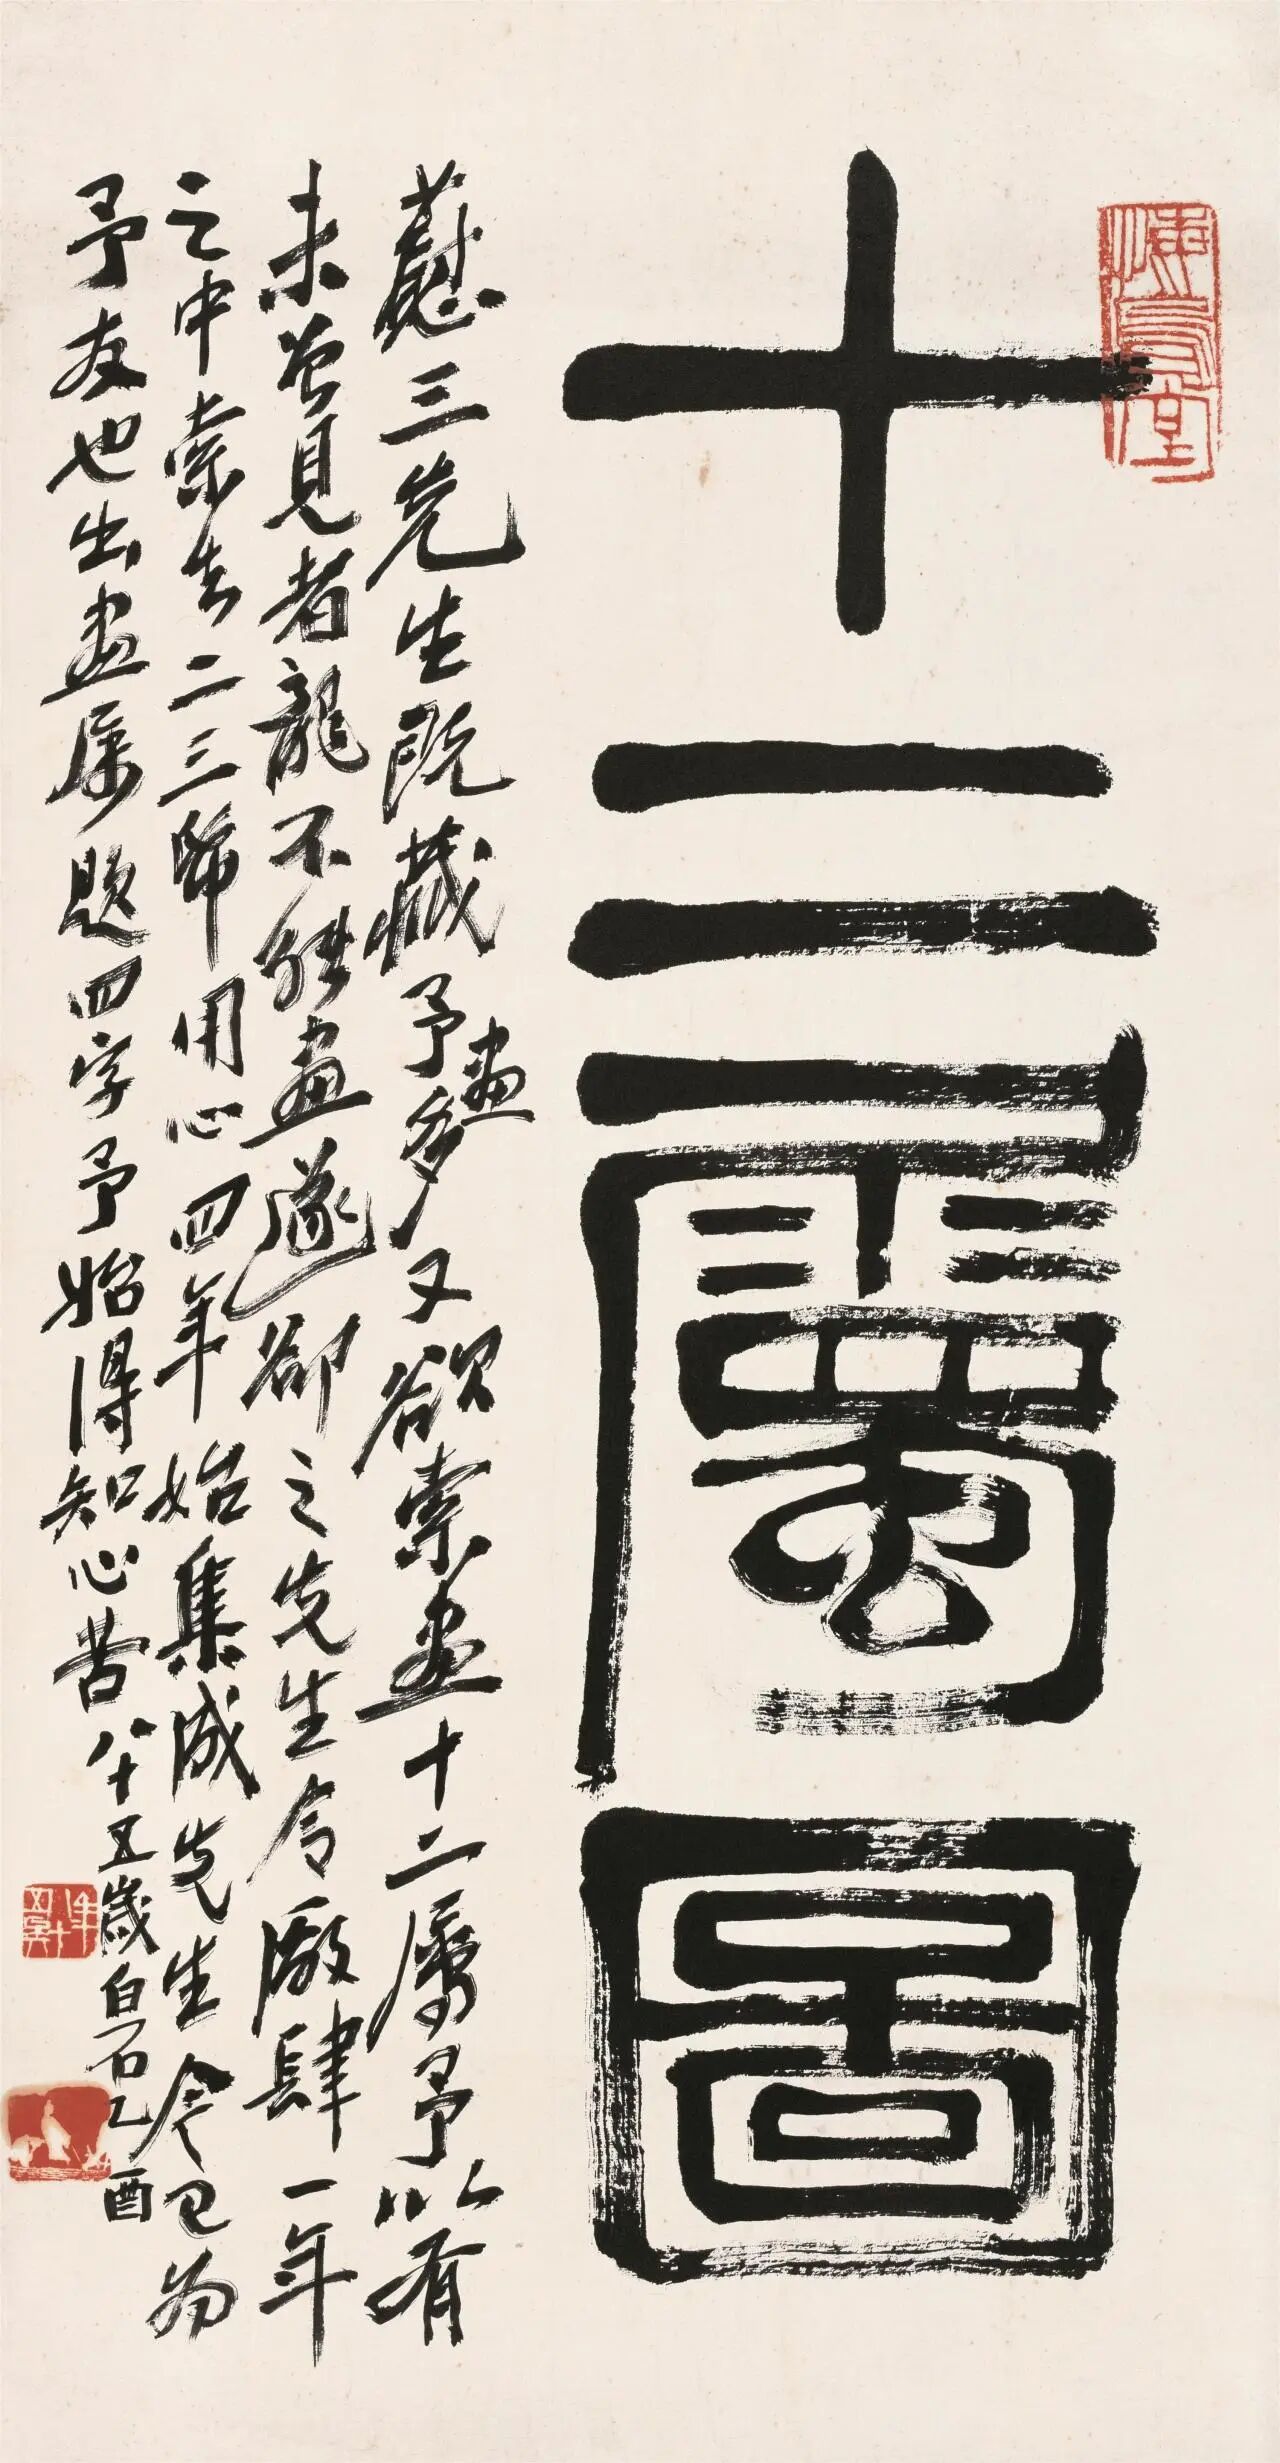 十二屬圖
悔烏堂
慰三先生既藏予畫多又欲索畫十二屬予以有
未曾見者龍不能畫遂卻之先生令廠肆一年
之中索去二三幀用心四年始集成先生今已為
予友也出畫屬題四字予始得知心苦八十五歲白石乙酉